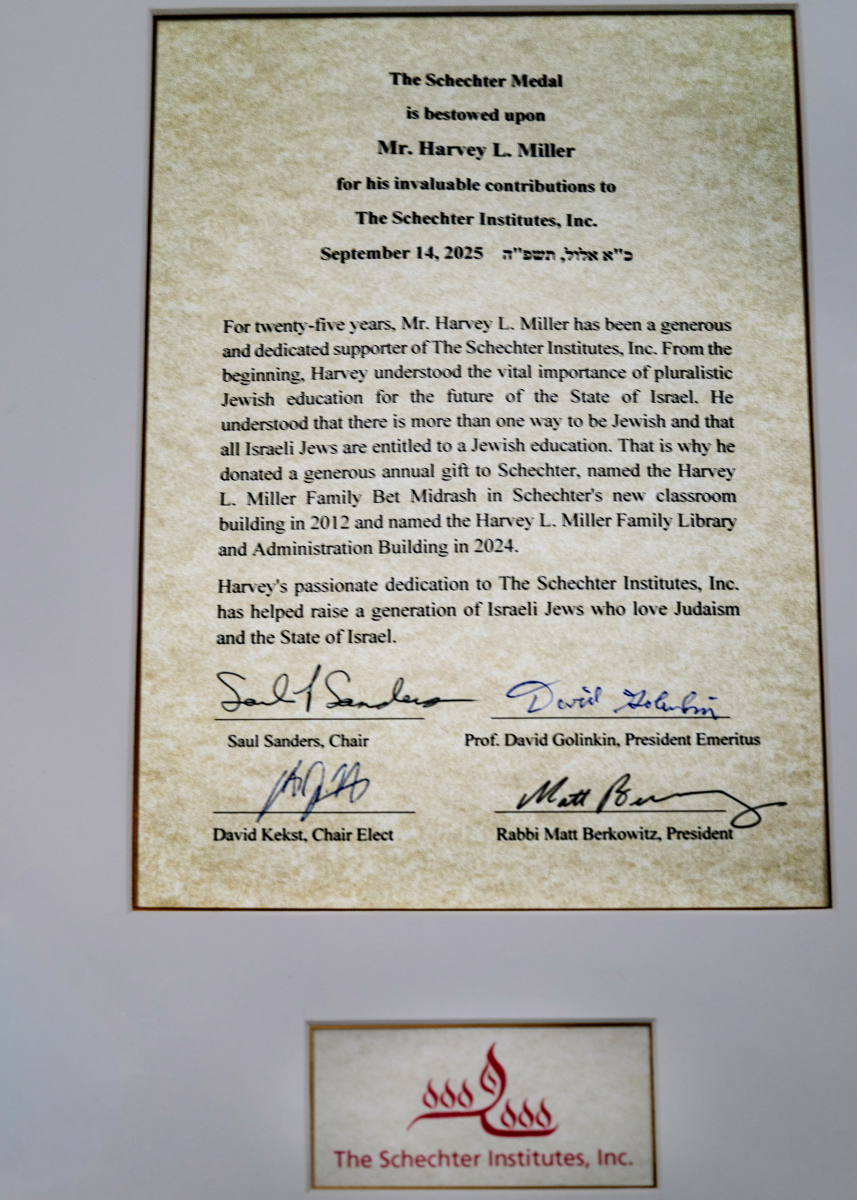 The Schechter Medal
is bestowed upon
Mr. Harvey L. Miller
for his invaluable contributions to
The Schechter Institutes, Inc.
September 14, 2025 כ"א אלול, תשפ"ה
For twenty-five years, Mr. Harvey L. Miller has been a generous
and dedicated supporter of The Schechter Institutes, Inc. From the
beginning, Harvey understood the vital importance of pluralistic
Jewish education for the future of the State of Israel. He
understood that there is more than one way to be Jewish and that
all Israeli Jews are entitled to a Jewish education. That is why he
donated a generous annual gift to Schechter, named the Harvey
L. Miller Family Bet Midrash in Schechter's new classroom
building in 2012 and named the Harvey L. Miller Family Library
and Administration Building in 2024.
Harvey's passionate dedication to The Schechter Institutes, Inc.
has helped raise a generation of Israeli Jews who love Judaism
and the State of Israel.
Saul Sanders David Golinkin
Saul Sanders, Chair Prof. David Golinkin, President Emeritus
Matt
David Kekst, Chair Elect Rabbi Matt Berkowitz, President
The Schechter Institutes, Inc.